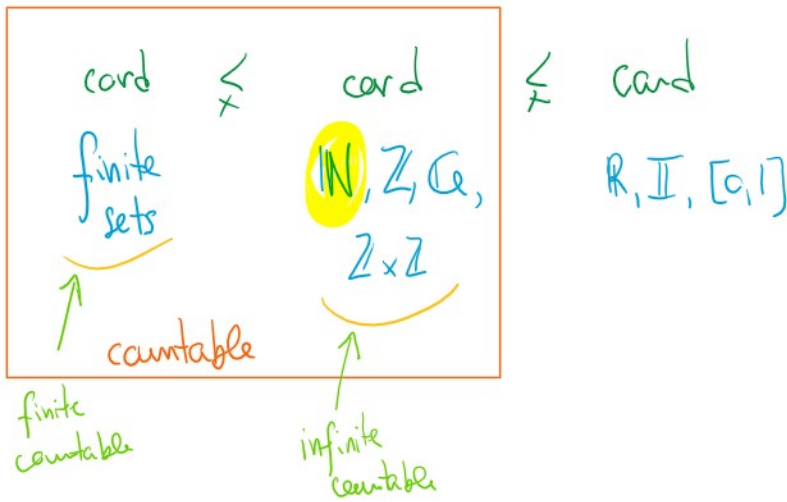 card ≨ card ≨ card
finite
sets
ℕ, ℤ, ℚ,
ℤ × ℤ
ℝ, 𝕀, [0,1]
countable
finite
countable
infinite
countable